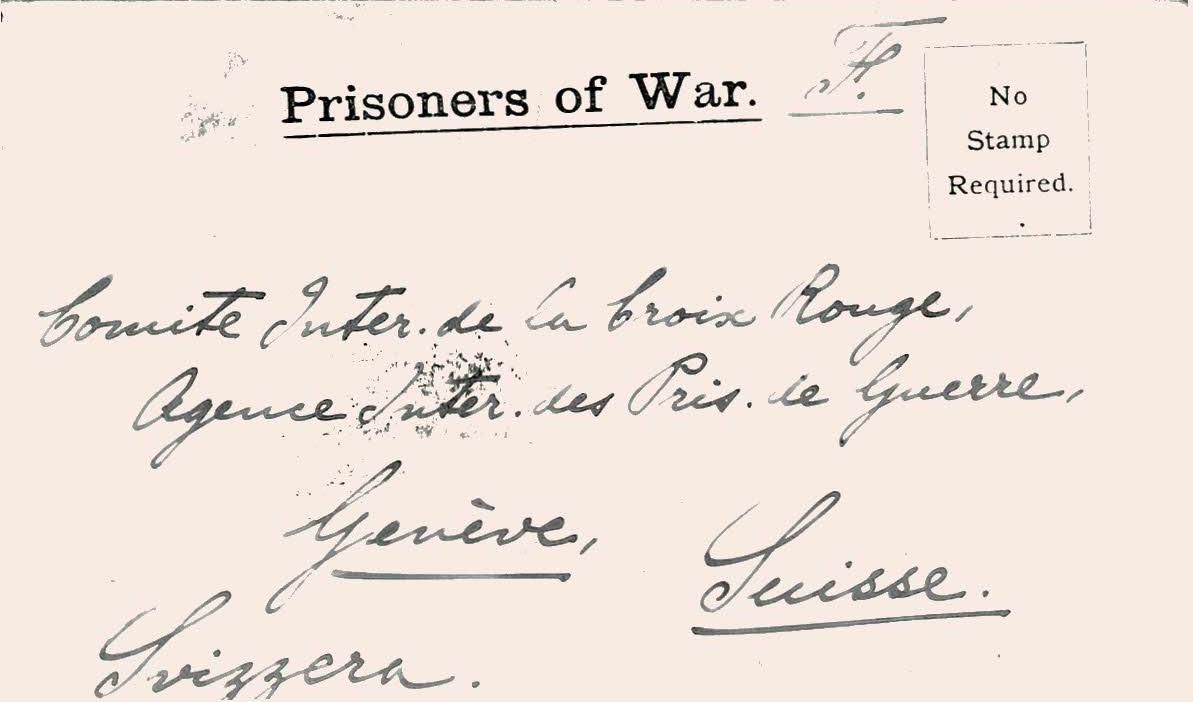 Prisoners of War.
No
Stamp
Required.
Comité Inter. de la Croix Rouge,
Agence Inter. des Pris. de Guerre,
Genève,
Suisse.
Svizzera.